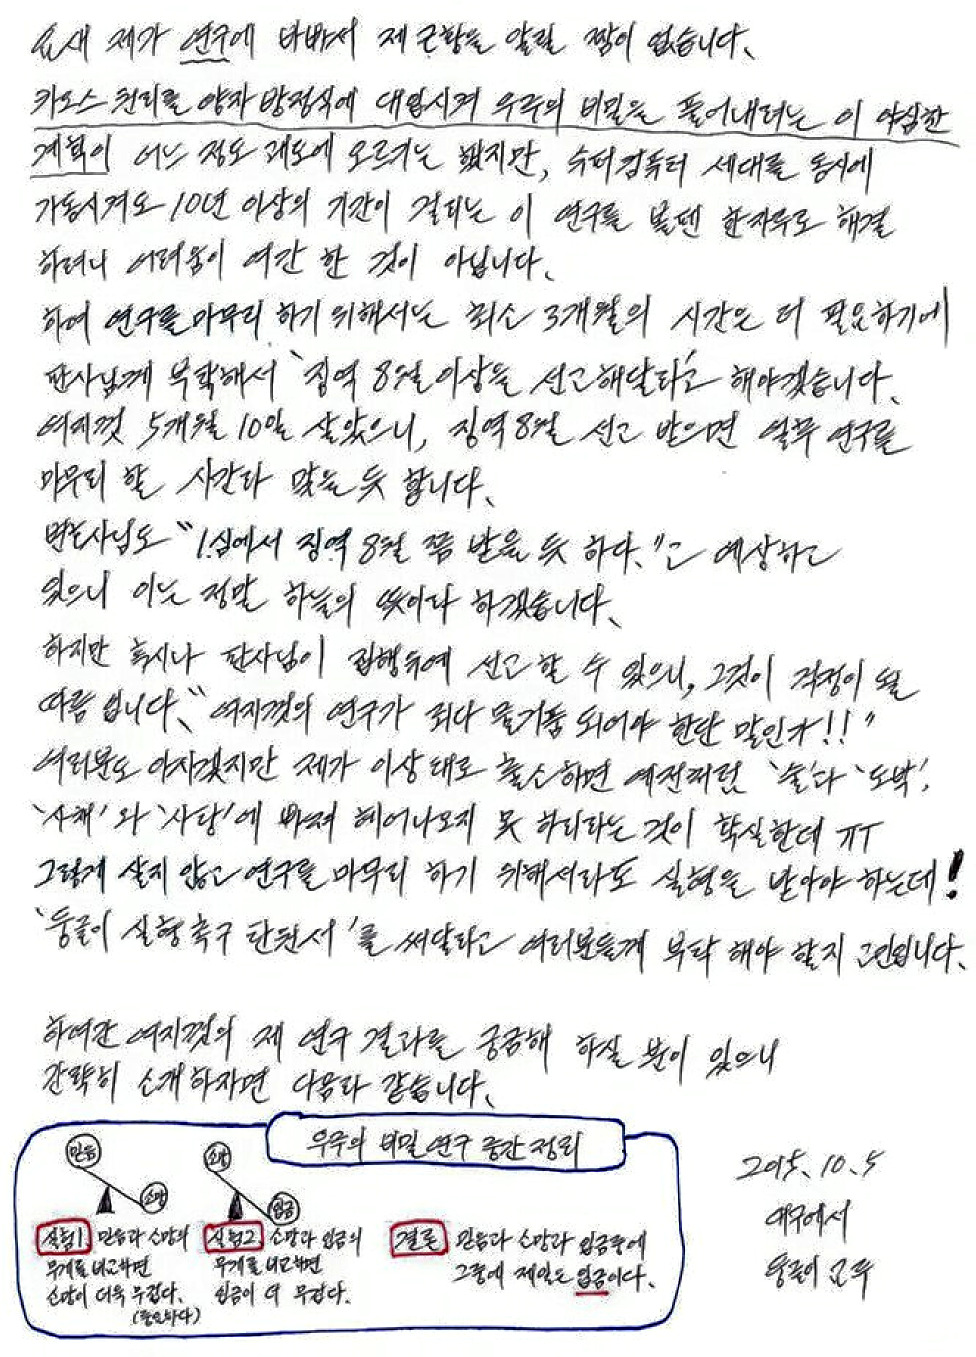 요새 제가 연구에 바빠서 제 근황을 알릴 짬이 없습니다.
카오스 원리를 양자 방정식에 대입시켜 우주의 비밀을 풀어내려는 이 야심찬
계획이 어느 정도 궤도에 오르기는 했지만, 슈퍼컴퓨터 세대를 동시에
가동시켜도 10년 이상의 기간이 걸리는 이 연구를 볼펜 한자루로 해결
하려니 어려움이 여간 한 것이 아닙니다.
하여 연구를 마무리 하기 위해서는 최소 3개월의 시간은 더 필요하기에
판사님께 부탁해서 '징역 8월 이상을 선고해달라'고 해야겠습니다.
여지껏 5개월 10일 살았으니, 징역 8월 선고 받으면 얼추 연구를
마무리 할 시간과 맞을 듯 합니다.
변호사님도 "1심에서 징역 8월 쯤 받을 듯 하다."고 예상하고
있으니 이는 정말 하늘의 뜻이라 하겠습니다.
하지만 혹시나 판사님이 집행유예 선고 할 수 있으니, 그것이 걱정이 될
따름 입니다. "여지껏의 연구가 죄다 물거품 되어야 한단 말인가!!"
여러분도 아시겠지만 제가 이상태로 출소하면 예전처럼 '술'과 '도박',
'사채'와 '사탕'에 빠져 헤어나오지 못 하리라는 것이 확실한데 ㅠㅠ
그렇게 살지 않고 연구를 마무리 하기 위해서라도 실형을 받아야 하는데!
'둥글이 실형촉구 탄원서'를 써달라고 여러분들께 부탁 해야 할지 고민입니다.
하여간 여지껏의 제 연구 결과를 궁금해 하실 분이 있으니
간략히 소개하자면 다음과 같습니다.
우주의 비밀 연구 중간 정리
믿음 소망
소망 입금
실험1 믿음과 소망의
무게를 비교하면
소망이 더욱 무겁다.
(중요하다)
실험2 소망과 입금의
무게를 비교하면
입금이 더 무겁다.
결론 믿음과 소망과 입금중에
그중에 제일은 입금이다.
2015. 10. 5
대구에서
둥글이